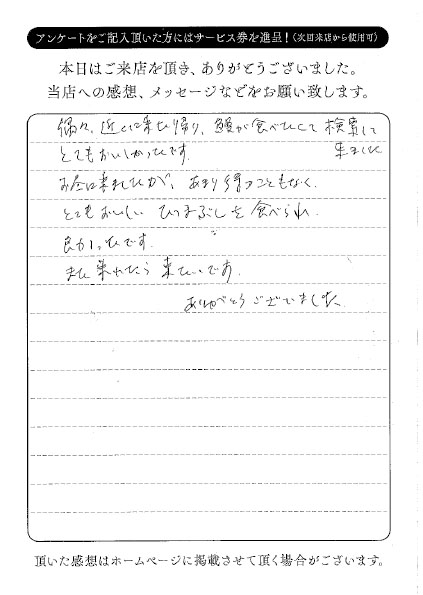 アンケートをご記入頂いた方にはサービス券を進呈！（次回来店から使用可）
本日はご来店を頂き、ありがとうございました。
当店への感想、メッセージなどをお願い致します。
近くに来た帰り、鰻が食べたくて検索して
来ました
とてもおいしかったです。
お昼に来ましたが、あまり待つこともなく、
とてもおいしいひつまぶしを食べられ
良かったです。
また来れたら来たいです。
ありがとうございました。
頂いた感想はホームページに掲載させて頂く場合がございます。